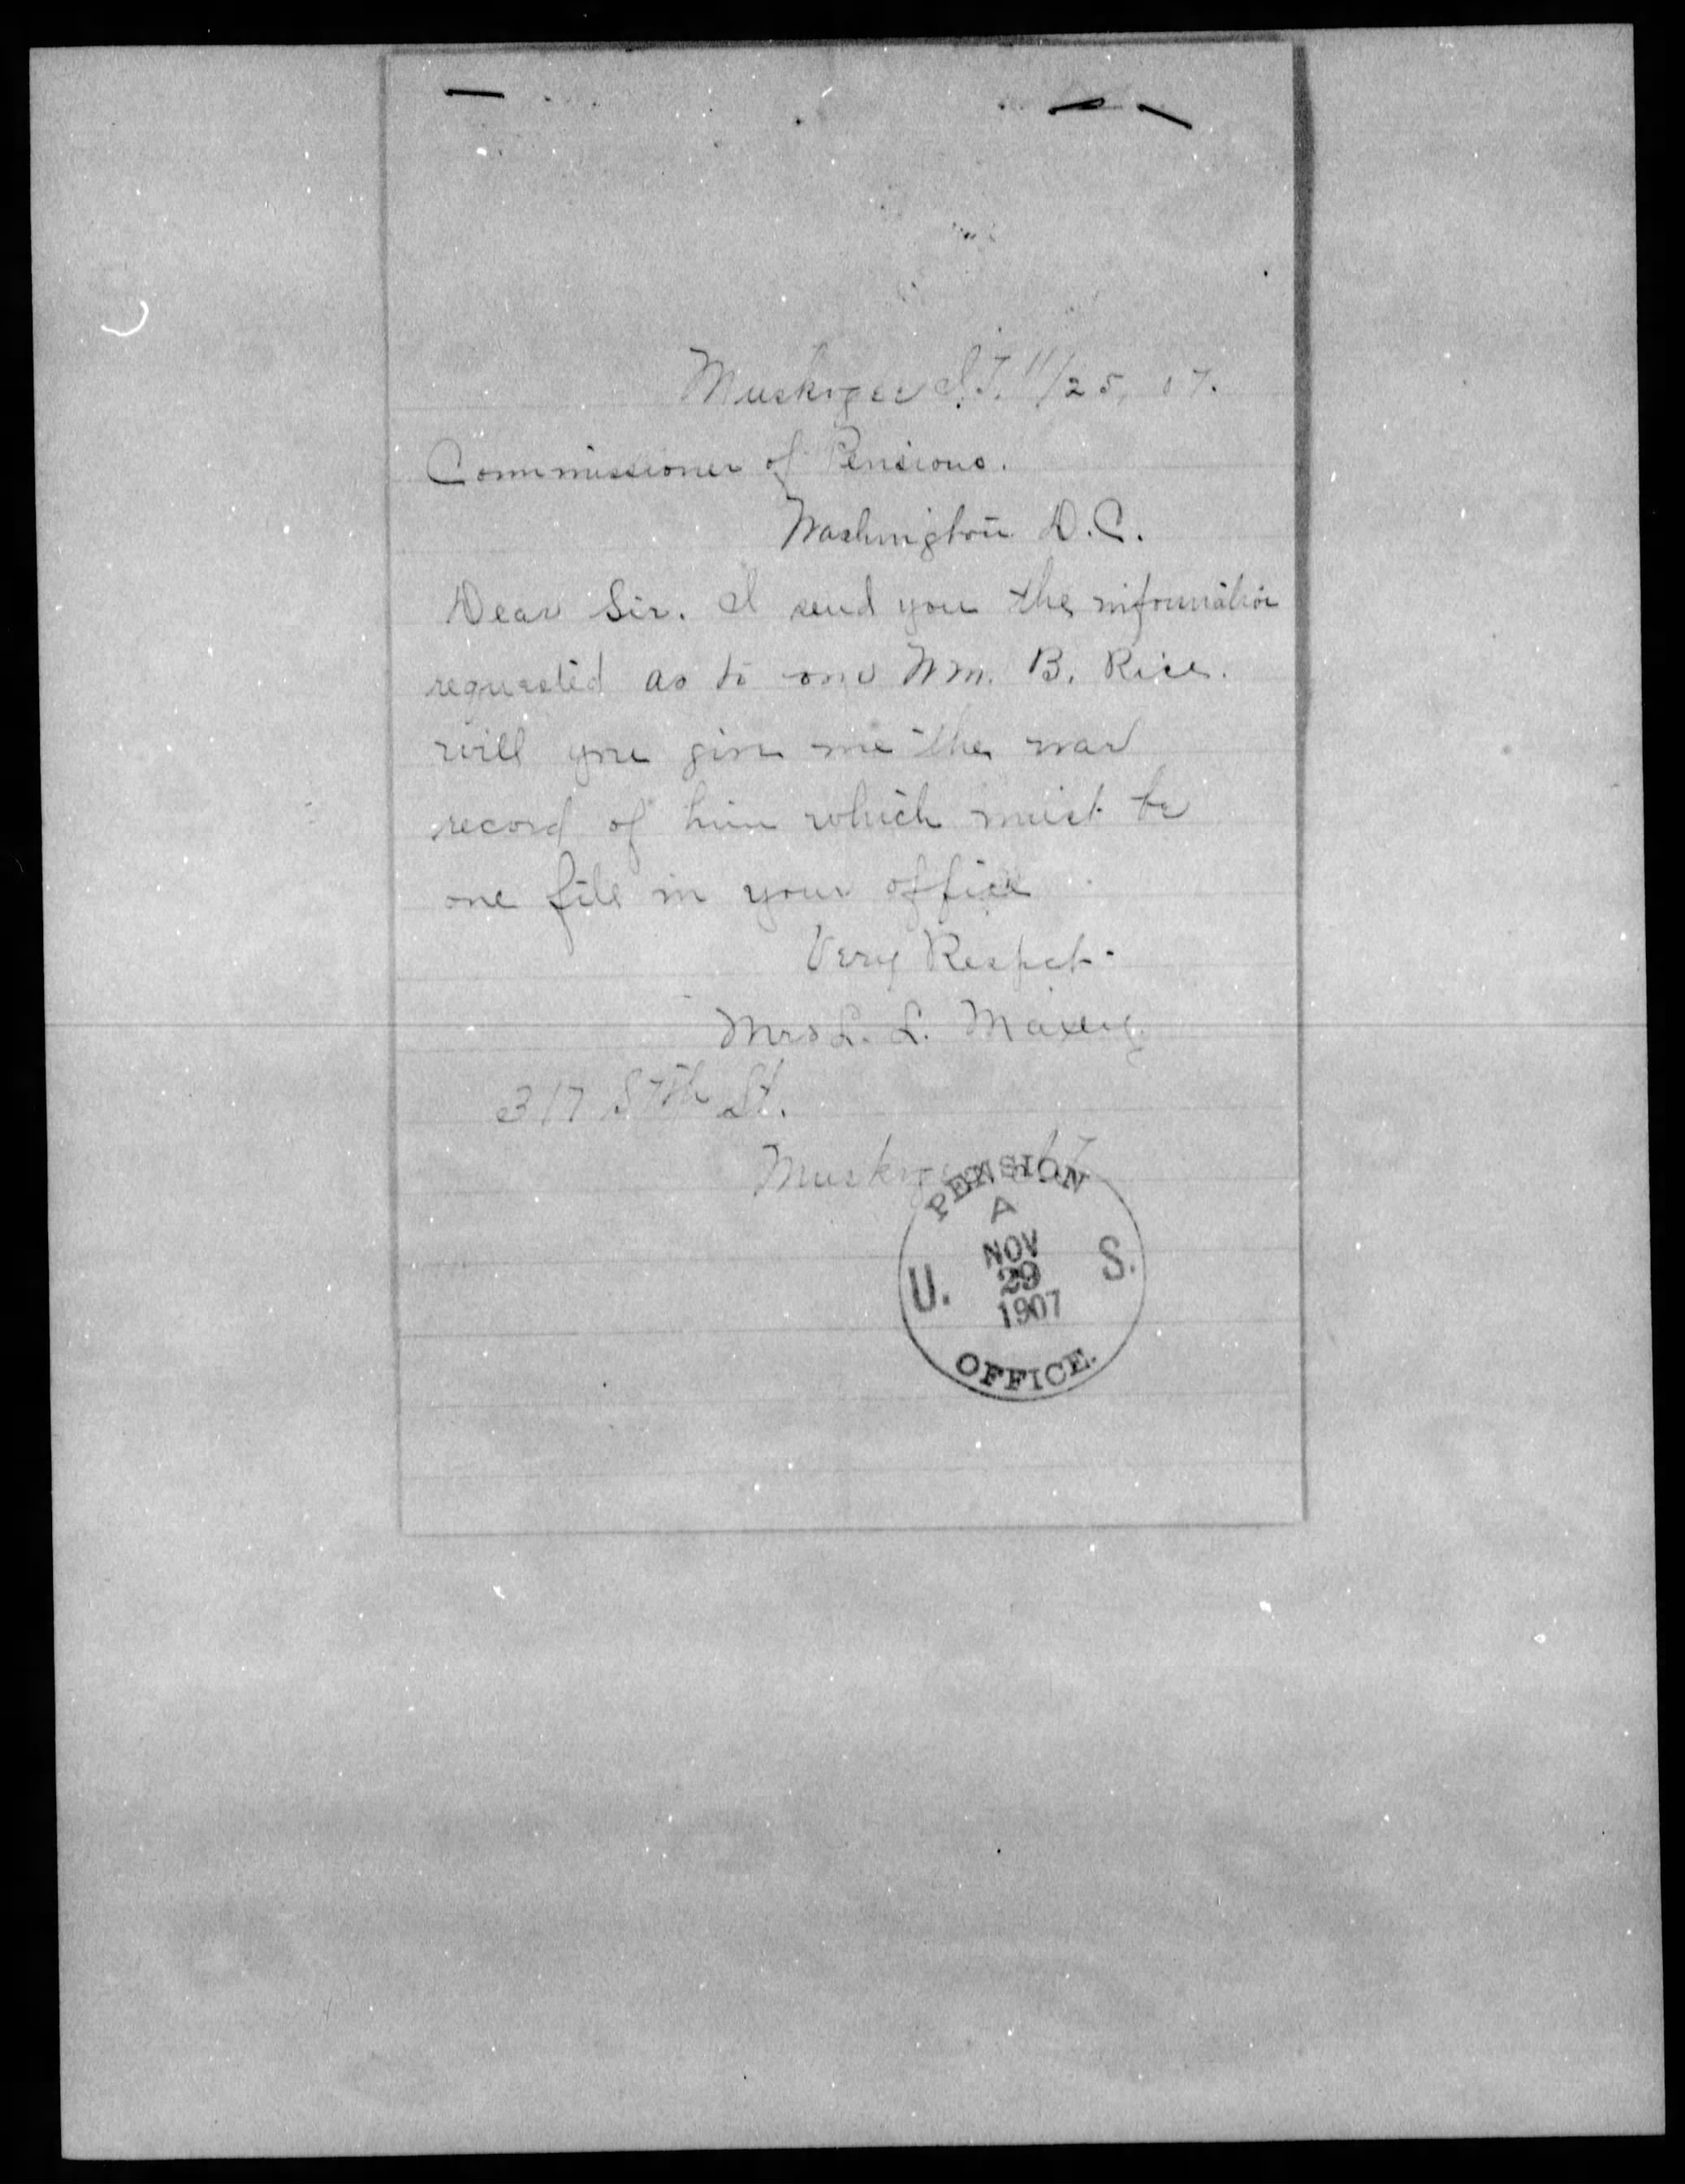 Muskogee I.T. 11/25, 07.
Commissioner of Pensions.
Washington D.C.
Dear Sir. I send you the information
requested as to one Wm. B. Rice.
will you give me the war
record of him which must be
one file in your office
Very Respct.
Mrs L. L. Maxey
317 S 7th St.
Muskogee I.T.
PENSION
A
NOV
U. 29 S.
1907
OFFICE.